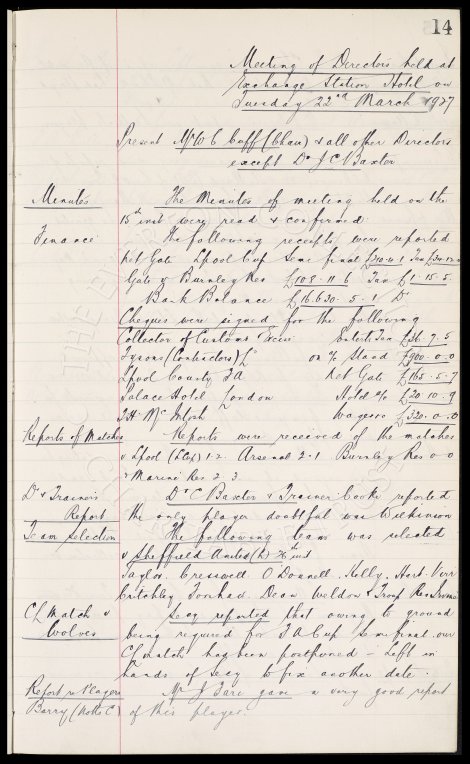 14
Meeting of Directors held at
Exchange Station Hotel on
Tuesday 22nd March 1927
Present Mr W C Cuff (Chair) & all other Directors
except Dr J C Baxter
Minutes The Minutes of meeting held on the
15th inst were read & confirmed.
Finance The following receipts were reported
Net Gate Lpool Cup Semi final Tax
Gate v Burnley Res £108. 11. 6 Tax £1. 15. 5.
Bank Balance £16630. 5. 1 Dr
Cheques were signed for the following
Collector of Customs Excise Entert Tax £36. 9. 5
Tysons (Contractors) Ld on a/c Stand £900. 0. 0
Lpool County FA Net Gate £165. 5. 7
Palace Hotel London Hotel a/c £20. 10. 9
T H McIntosh Wages &c £320. 0. 0
Reports of Matches Reports were received of the matches
v Lpool (LCs/f) 1. 2. Arsenal 2. 1 Burnley Res 0-0
v Marine Res 2. 3.
Dr & Trainer's Dr C Baxter & Trainer Cooke reported
Report the only player doubtful was Wilkinson
Team Selection The following team was selected
v Sheffield United (h) 26th inst
Taylor. Cresswell O'Donnell. Kelly. Hart. Virr
Critchley Irvine Dean Weldon & Troup Res
CL Match v Secy reported that owing to ground
Wolves being required for FA Cup Semi final our
CL match had been postponed - Left in
hands of Secy to fix another date.
Report re Player Mr J Fare gave a very good report
Barry (Notts C) of this player.